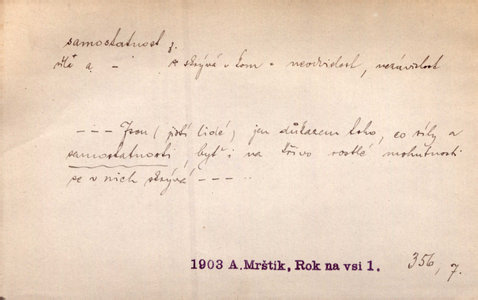 samostatnost, f.
síla a - se skrývá v tom - neodvislost, nezávislost
--- Jsou (prostí lidé) jen důkazem toho, co síly a
samostatnosti, byť i na křivo rostlé mohutnosti
se v nich skrývá ----
1903 A. Mrštík, Rok na vsi 1. 356, 7.